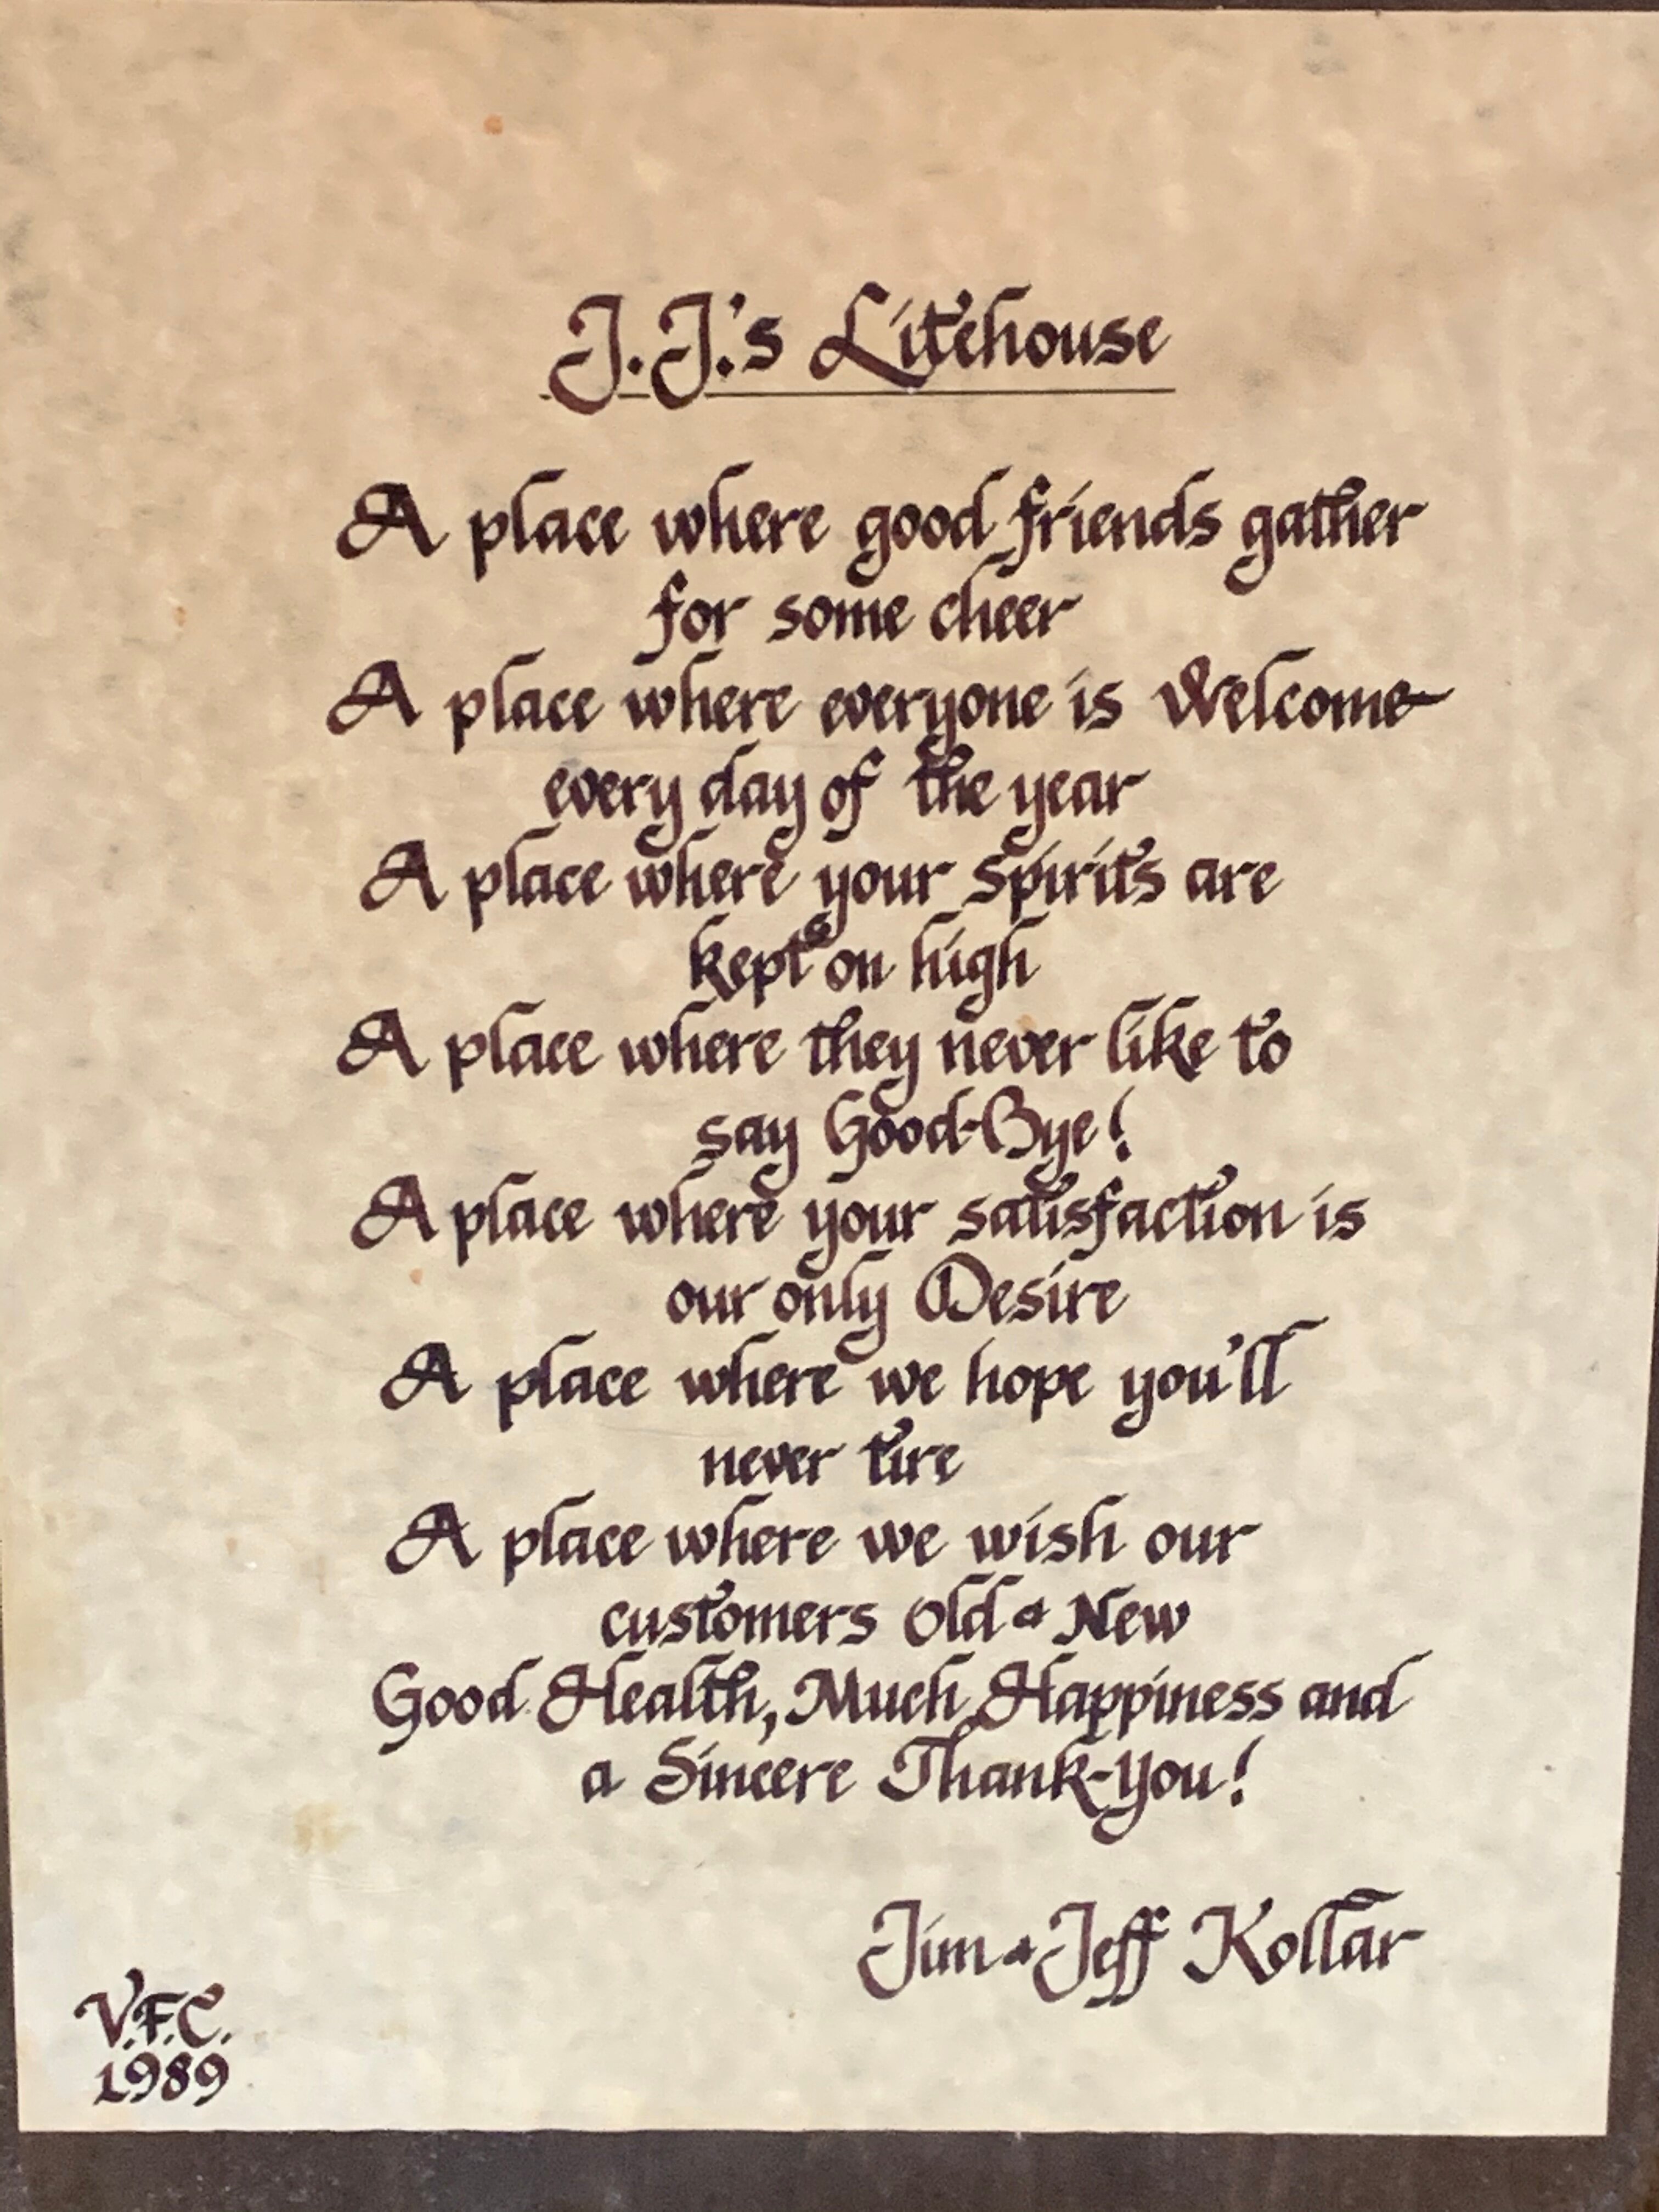 J.J.'s Litehouse
A place where good friends gather
for some cheer
A place where everyone is Welcome
every day of the year
A place where your spirits are
kept on high
A place where they never like to
say Good-Bye!
A place where your satisfaction is
our only Desire
A place where we hope you'll
never tire
A place where we wish our
customers Old & New
Good Health, Much Happiness and
a Sincere Thank-You!
Jim & Jeff Kollar
V.F.C.
1989